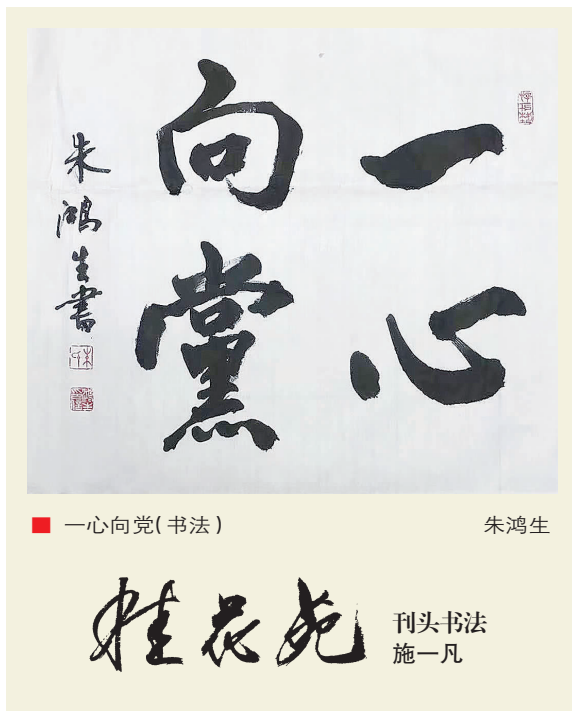 一心
向黨
朱鴻生書
一心向党(书法)
朱鸿生
桂花苑
刊头书法
施一凡